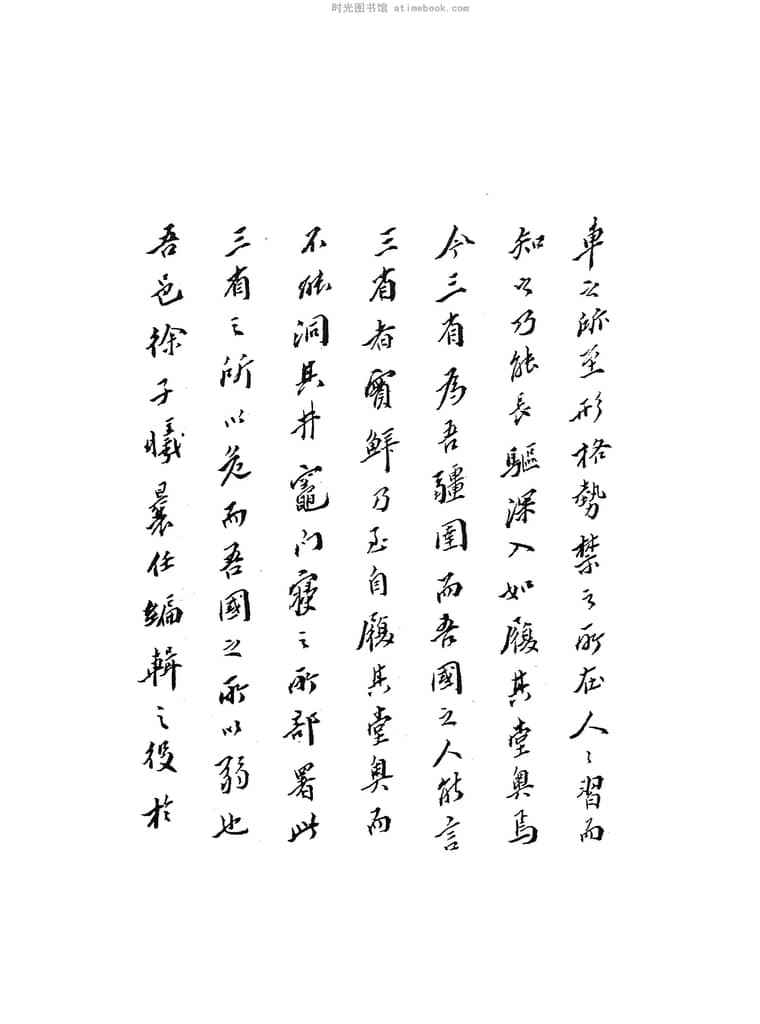 时光图书馆 atimebook.com
車之所至形格勢禁之所在人々習而
知之乃能長驅深入如履其堂奧焉
今三省為吾疆圉而吾國之人能言
三省者實鮮乃至自履其堂奧而
不能洞其井竈門寢之所部署此
三省之所以危而吾國之所以弱也
吾邑徐子曦曩任編輯之役於